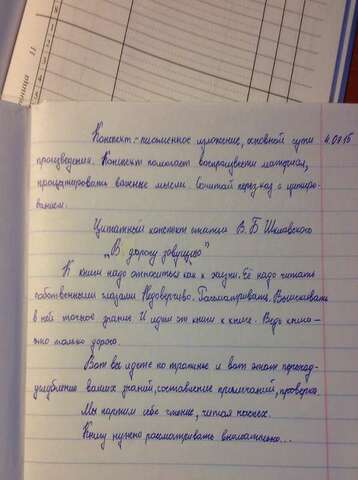 11
Конспект - письменное изложение, основной сути 4.09.15
произведения. Конспект помогает воспроизвести материал,
процитировать важные мысли. Сочитай пересказ с цитиро-
ванием.
Цитатный конспект статьи В.Б Шкловского
"В дорогу зовущие"
К книге надо относиться как к жизни. Её надо читать
собственными глазами Недоверчиво. Рассматривать. Выискивать
в ней точное знание И идти от книги к книге. Ведь книга-
это только дорога.
Вот вы идете по тропинке и вот этот переход-
углубление ваших знаний, составление примечаний, проверка.
Мы портим себе чтение, читая поспех.
Книгу нужно рассматривать внимательно...